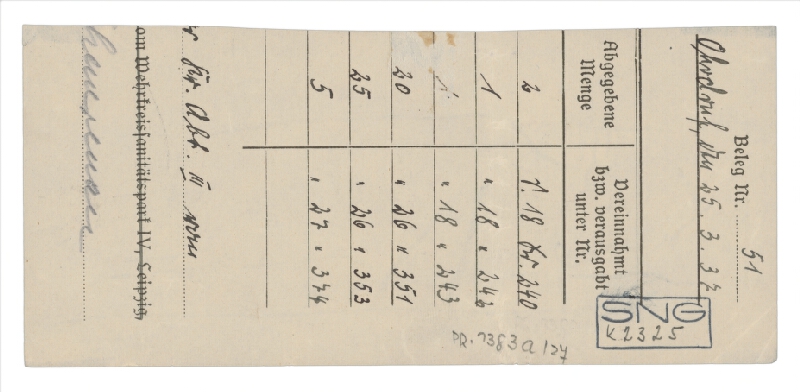 Beleg Nr. 51
Ohrdruf, den 25.3.37
Abgegebene Menge
Vereinnahmt bzw. verausgabt unter Nr.
2 S. 18 Nr. 240
1 " 18 " 242
1 " 18 " 243
20 " 26 " 351
25 " 26 " 353
5 " 27 " 374
Abt. IV vom
am Wehrkreissanitätspark IV, Leipzig,
SNG
K 2325
PR. 7383 a 127